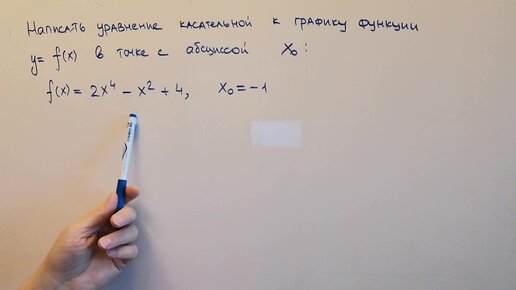 Написать уравнение касательной к графику функции
y= f(x) в точке с абсциссой x₀:
f(x) = 2x⁴ - x² + 4, x₀ = -1